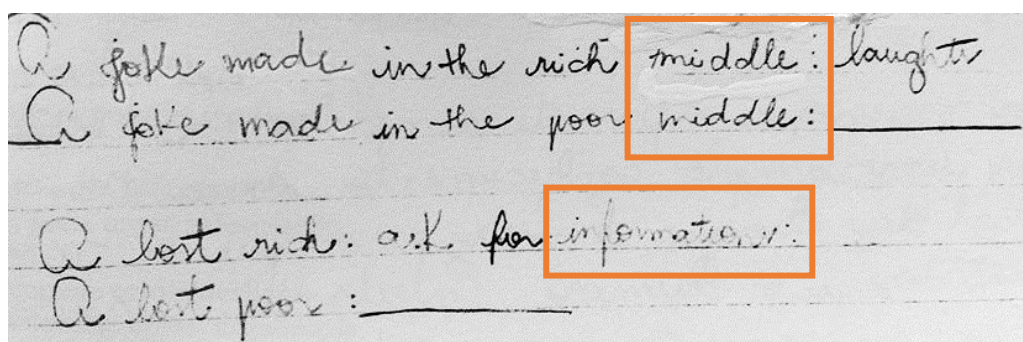 A joke made in the rich middle: laught
A joke made in the poor middle:
A lost rich: ask for information:
A lost poor: